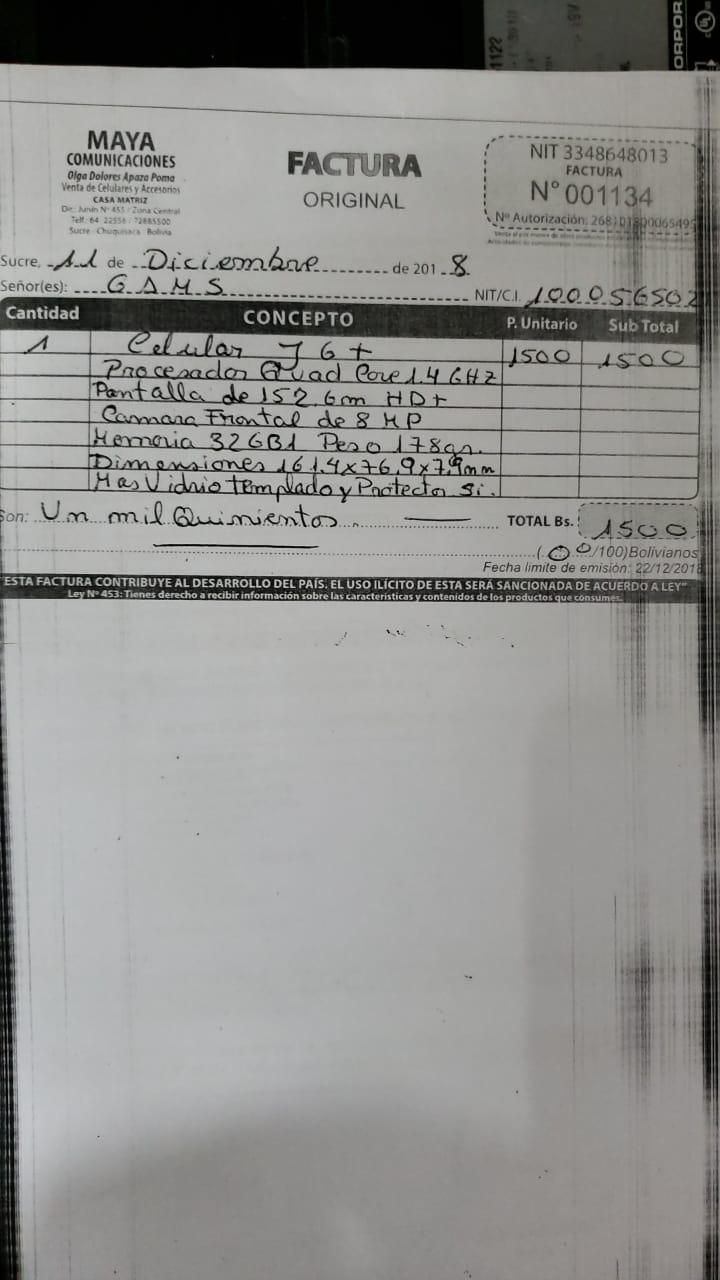 1122
ORPOR
MAYA
COMUNICACIONES
Olga Dolores Apaza Poma
Venta de Celulares y Accesorios
CASA MATRIZ
Dir.: Junín Nº 455 / Zona Central
Telf. 64 22556 / 72885500
Sucre - Chuquisaca - Bolivia
FACTURA
ORIGINAL
NIT 3348648013
FACTURA
N° 001134
Nº Autorización: 268101800065495
Sucre, 11 de Diciembre de 2018
Señor(es): G A M S NIT/C.I. 100056502
Cantidad CONCEPTO P. Unitario Sub Total
1 Celular J6+ 1500 1500
Procesador Quad Core 1.4 GHz
Pantalla de 152.6m HD+
Camara Frontal de 8 MP
Memoria 32GB1 Peso 178gr.
Dimensiones 161.4x76,9x7,9mm
Mas Vidrio templado y Protector Si.
Son: Un mil Quinientos TOTAL Bs. 1500
(00/100) Bolivianos
Fecha limite de emisión: 22/12/2018
"ESTA FACTURA CONTRIBUYE AL DESARROLLO DEL PAÍS. EL USO ILÍCITO DE ESTA SERÁ SANCIONADA DE ACUERDO A LEY"
Ley Nº 453: Tienes derecho a recibir información sobre las características y contenidos de los productos que consumes.